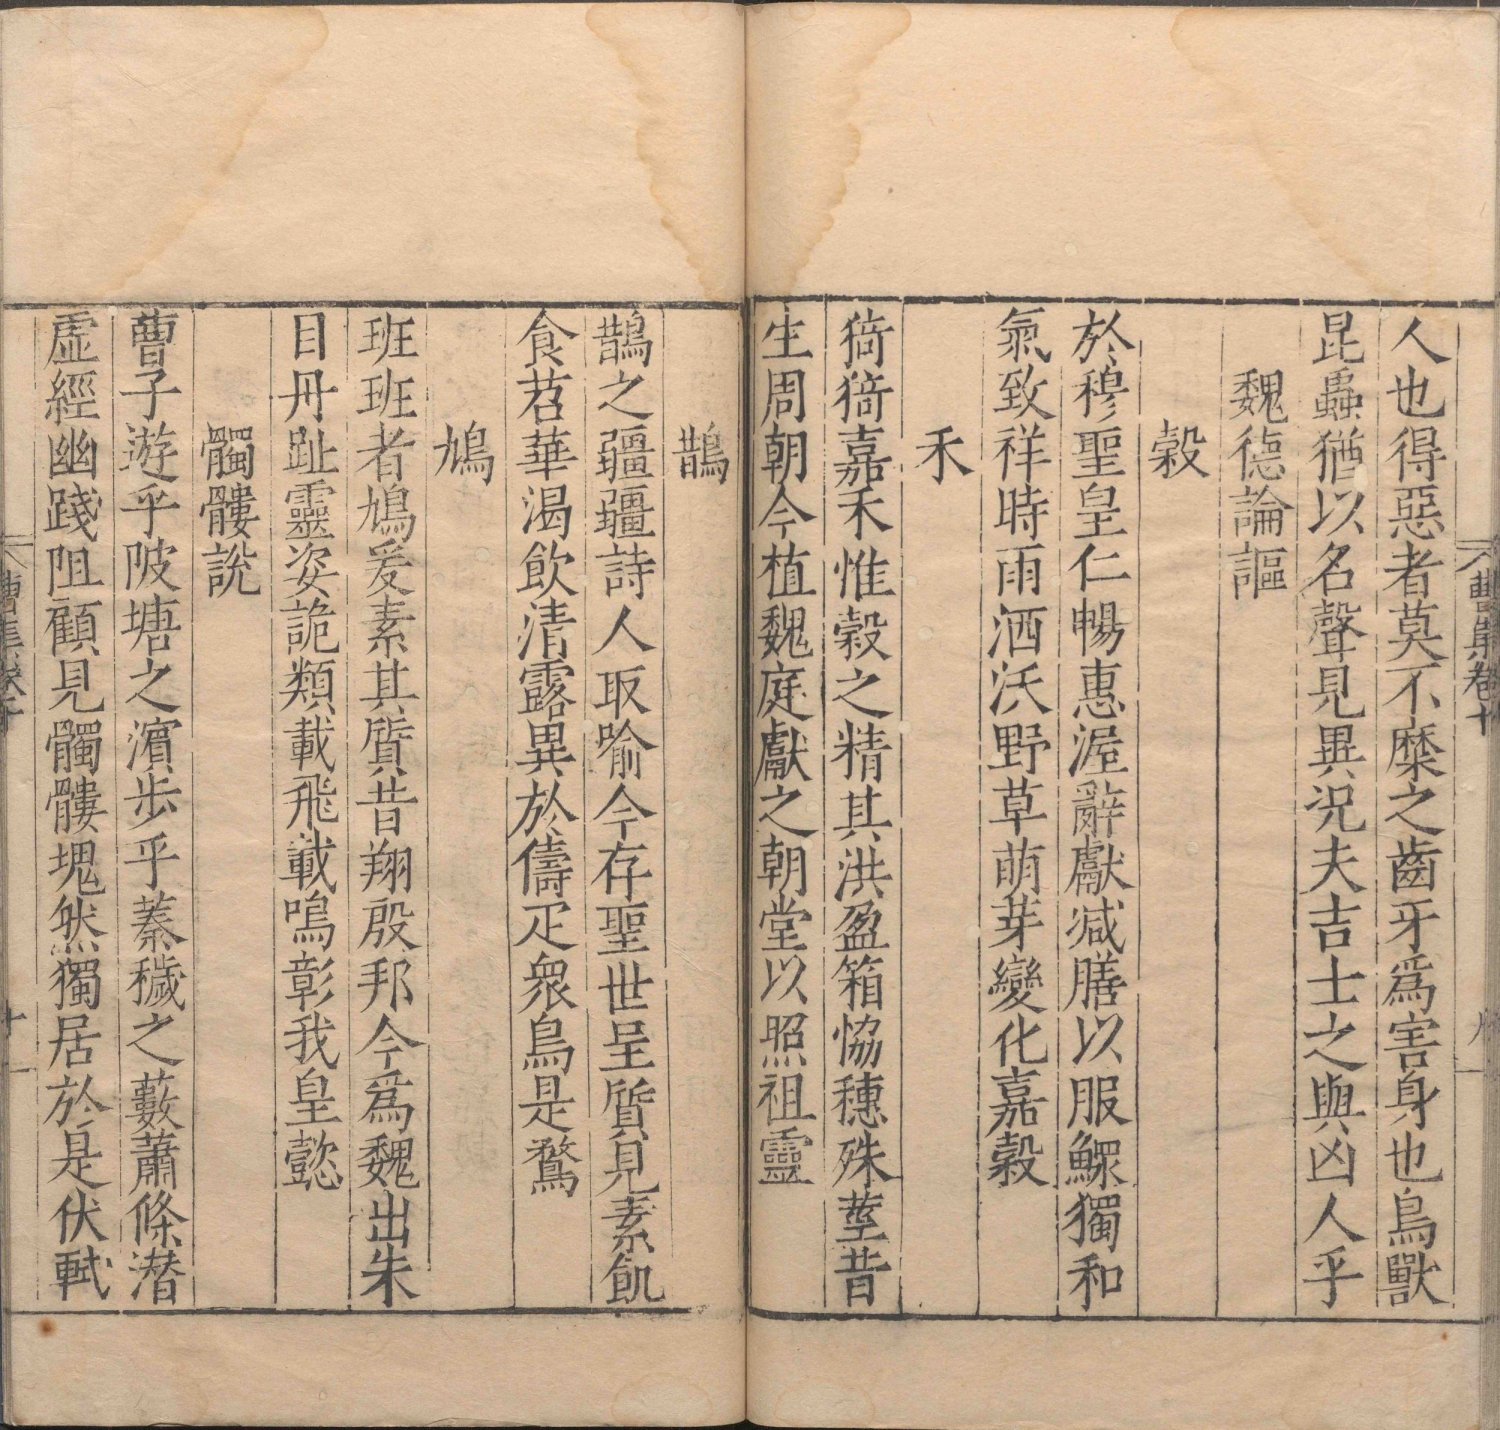 曹集卷十
人也得惡者莫不糜之齒牙爲害身也鳥獸
昆蟲猶以名聲見異況夫吉士之與凶人乎
魏德論謳
穀
於穆聖皇仁暢惠渥辭獻減膳以服鰥獨和
氣致祥時雨洒沃野草萌芽變化嘉穀
禾
猗猗嘉禾惟穀之精其洪盈箱恊穗殊莖昔
生周朝今植魏庭獻之朝堂以照祖靈
鵲
鵲之疆疆詩人取喻今存聖世呈質見素飢
食苕華渴飲清露異於儔疋衆鳥是鶩
鳩
班班者鳩爰素其質昔翔殷邦今爲魏出朱
目丹趾靈姿詭類載飛載鳴彰我皇懿
髑髏說
曹子遊乎陂塘之濱步乎蓁穢之藪蕭條潛
虛經幽踐阻顧見髑髏塊然獨居於是伏軾
曹集卷十
十一